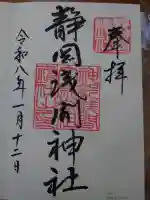 奉拝
静岡浅間神社
令和八年一月十二日